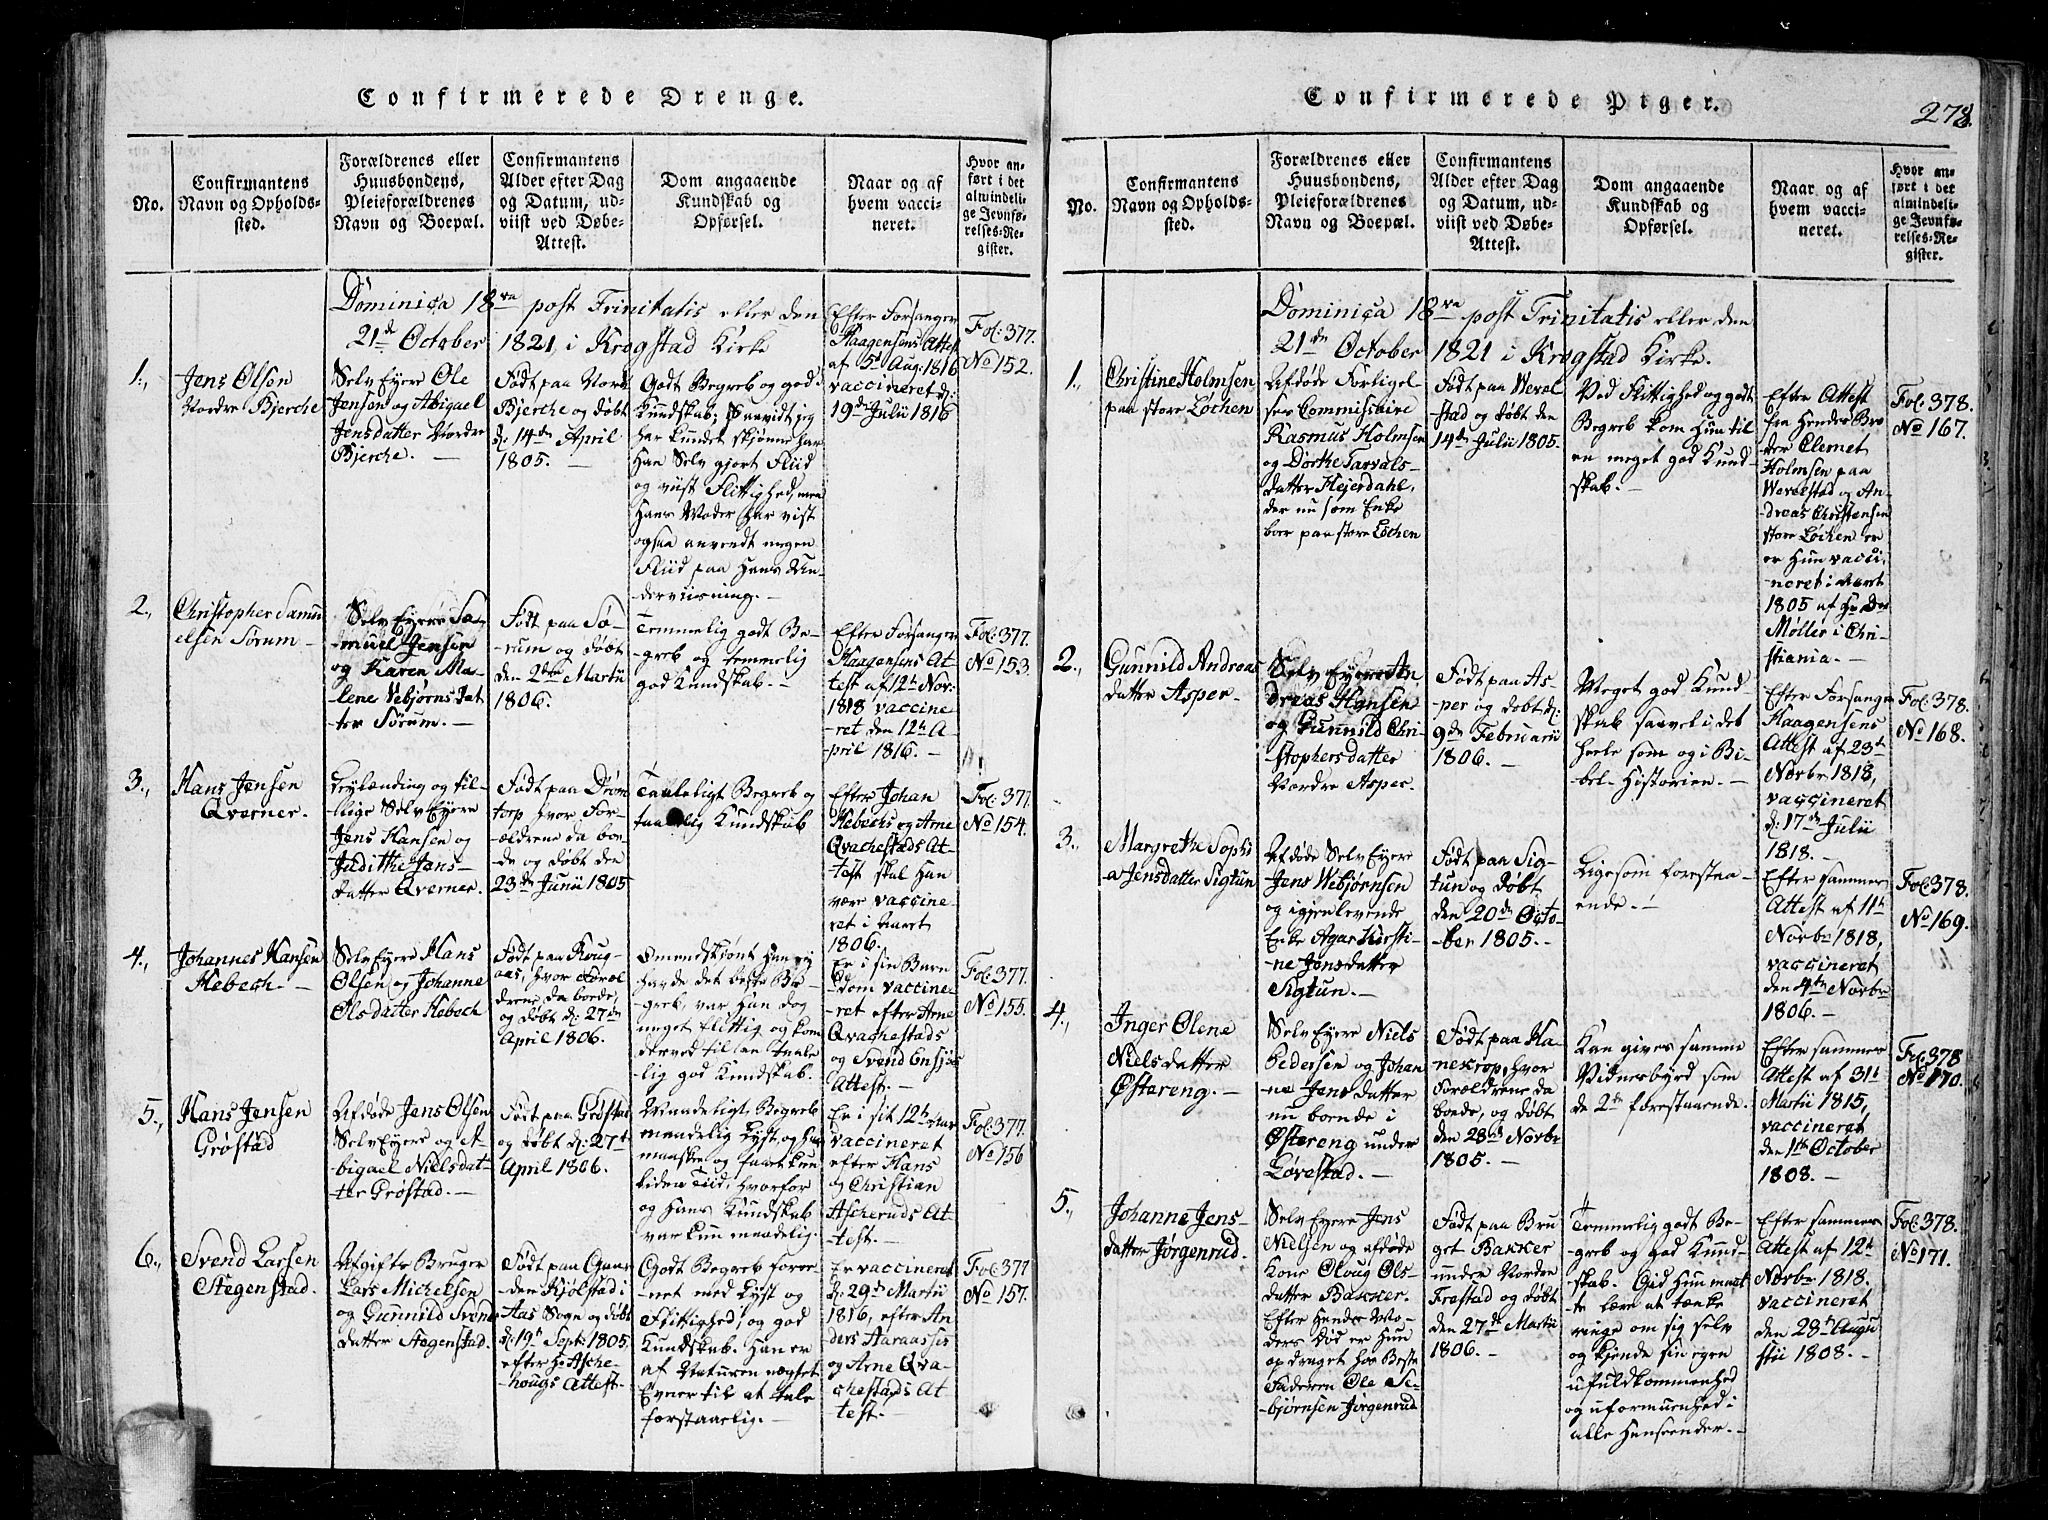 Confirmerede Drenge.
No.
Confirmantens
Navn og Opholds-
sted.
Forældrenes eller
Huusbondens,
Pleieforældrenes
Navn og Boepæl.
Confirmantens
Alder efter Dag
og Datum, ud-
viist ved Døbe-
Attest.
Dom angaaende
Kundskab og
Opførsel.
Naar og af
hvem vacci-
neret.
Hvor an-
ført i det
almindeli-
ge Jevnfø-
relses-Re-
gister.
Dominica 18va post Trinitatis eller den
21de October 1821 i Krogstad Kirke
1.,
Jens Olsen
Nordre Bjerche
Selv Eyere Ole
Jensen og Abigael
Jensdatter Nordre
Bjerche. —
Født paa Nord
Bjerche og døbt
d: 14de April
1805. —
Godt Begreb og god
Kundskab; Saavidt jeg
har kundet skjønne har
Han Selv gjort Fliid
og viist Flittighed, men
Hans Moder har vist
ogsaa anvendt megen
Fliid paa Hans Un-
derviisning. —
Efter Forsanger
Haagensens Attest
af 5t Aug: 1816
vaccineret d:
19de Julii 1816
Fol: 377.
No 152.
2.,
Christopher Samu
elsen Sørum —
Selv Eyere Sa-
muel Jensen
og Karen Ma-
lene Vebjørns Dat
ter Sørum. —
Født paa Sø-
rum og døbt
den 2den Martii
1806. —
Temmelig godt Be-
greb og temmelig
god Kundskab. —
Efter Forsanger
Haagensens At-
test af 12te Nov:
1818 vaccine
ret den 12te A-
pril 1816. —
Fol: 377.
No 153.
3.,
Hans Jensen
Qverner.
Leylænding og til-
lige Selv Eyere
Jens Hansen og
Judithe Jens-
datter Qverner.
Født paa Drøm
torp hvor For-
ældrene da boe-
de og døbt den
23de Junii 1805
Taaleligt Begreb og
taalelig Kundskab
Efter Johan
Hebechs og Arne
Qvachestads At-
test skal Han
være vaccine-
ret i Aaret
1806.
Fol: 377.
No 154.
4.,
Johannes Hansen
Hebech —
Selv Eyere Hans
Olsen og Johanne
Olsdatter Hebech
Født paa Krug-
aas, hvor Foræl
drene da boede,
og døbt d: 27de
April 1806.
Omendskjønt Han ej
havde det beste Be-
greb, var Han dog
meget flittig og kom
derved til en taale
lig god Kundskab.
Er i sin Barn
dom vaccine-
ret efter Arne
Qvachestads
og Svend Ensjøs
Attest. —
Fol: 377.
No 155.
5.,
Hans Jensen
Grøstad
Afdøde Jens Olsen
Selv Eyere og A-
bigael Nielsdat-
ter Grøstad. —
Født paa Grøstad
og døbt d: 27t
April 1806.
Maadeligt Begreb
maadelig Lyst, og han
maaske og faaet kun
liden Tiid, hvorfor
og Hans Kundskab
var kun maadelig.
Er i sit 12te Aar
vaccineret
efter Hans
og Christian
Ascheruds At-
test. —
Fol: 377.
No 156
6.,
Svend Larsen
Stegenstad.
Afgifts Bruger
Lars Michelsen
og Gunnild Svens
datter Stegenstad.
Født paa Gaar
den Kjølstad i
Aas Sogn og døbt
d: 19t Sept: 1805,
efter Hr Asche-
hougs Attest.
Godt Begreb foree-
net med Lyst og
Flittighed, og god
Kundskab. Han er
af Naturen nægtet
Evner til at tale
forstaaelig. —
Er vaccineret
d: 29de Martii
1816, efter An
ders Haraasses
og Arne Qva-
chestads At-
test. —
Fol: 377
No 157.
Confirmerede Piger.
278.
No.
Confirmantens
Navn og Opholds-
sted.
Forældrenes eller
Huusbondens,
Pleieforældrenes
Navn og Boepæl.
Confirmantens
Alder efter Dag
og Datum, ud-
viist ved Døbe-
Attest.
Dom angaaende
Kundskab og
Opførsel.
Naar og af
hvem vacci-
neret.
Hvor an-
ført i det
almindeli-
ge Jevnfø-
relses-Re-
gister.
Dominica 18va post Trinitatis eller den
21de October 1821 i Krogstad Kirke.
1.,
Christine Holmsen
paa store Løchen
Afdøde Forligel-
ses Commissaire
Rasmus Holmsen
og Dorthe Tarvals-
datter Hejerdahl,
der nu som Enke
boer paa store Løchen
Født paa Wevel
stad og døbt den
14de Julii 1805.
Ved Flittighed og godt
Begreb kom Hun til
en meget god Kund
skab. —
Efter Attest
fra Hendes Bro
der Clemet
Holmsen paa
Wevelstad og An-
dreas Christensen
store Løchen er
er Hun vacci-
neret i Aaret
1805 af Hr Dr
Møller i Chri-
stiania. —
Fol: 378.
No 167.
2.,
Gunnild Andreas
datter Asper —
Selv Eyere An
dreas Hansen
og Gunnild Chri-
stophersdatter
Nordre Asper.
Født paa As-
per og døbt d:
9de Februarii
1806. —
Meget god Kund-
skab saavel i det
Heele som og i Bi-
bel-Historien. —
Efter Forsanger
Haagensens
Attest af 23t
Novbr 1818,
vaccineret
d: 17de Julii
1818. —
Fol: 378.
No 168.
3.,
Margrethe Sophi
a Jensdatter Sigtun
Afdøde Selv Eyere
Jens Webjørnsen
og igjenlevende
Enke Agar Kirsti-
ne Jensdatter
Sigtun. —
Født paa Sig-
tun og døbt
den 20de Octo-
ber 1805. —
Ligesom forestaa-
ende. —
Efter samme
Attest af 11te
Novbr 1818,
vaccineret
den 4de Novbr
1806. —
Fol: 378.
No 169.
4.,
Inger Olene
Nielsdatter
Østereng. —
Selv Eyere Niels
Pedersen og Johan
ne Jensdatter
nu boende i
Østereng under
Løvestad. —
Født paa Ka-
nekrop, hvor
Forældrene da
boede, og døbt
den 28de Novbr
1805. —
Kan gives samme
Vidnesbyrd som
de 2de forestaaende.
Efter samme
Attest af 31t
Martii 1815,
vaccineret
den 11te October
1808. —
Fol: 378
No 170.
5.,
Johanne Jens-
datter Jørgenrud.
Selv Eyere Jens
Nielsen og afdøde
Kone Oloug Ols-
datter Bakker.
Efter Hendes Mo-
ders Død er Hun
opdraget hos Beste
Faderen Ole Se-
bjørnsen Jørgenrud
Født paa Bru
get Bakker
under Nordre
Frestad og døbt
den 27de Martii
1806. —
Temmelig godt Be-
greb og god Kund-
skab. Gid Hun maat-
te lære at tænke
ringe om sig selv
og kjende sin egen
ufuldkommenhed
og uformuenhed i
alle Henseender. —
Efter samme
Attest af 12te
Novbr 1818.
vaccineret
den 28de Augu
stii 1808. —
Fol: 378.
No 171.